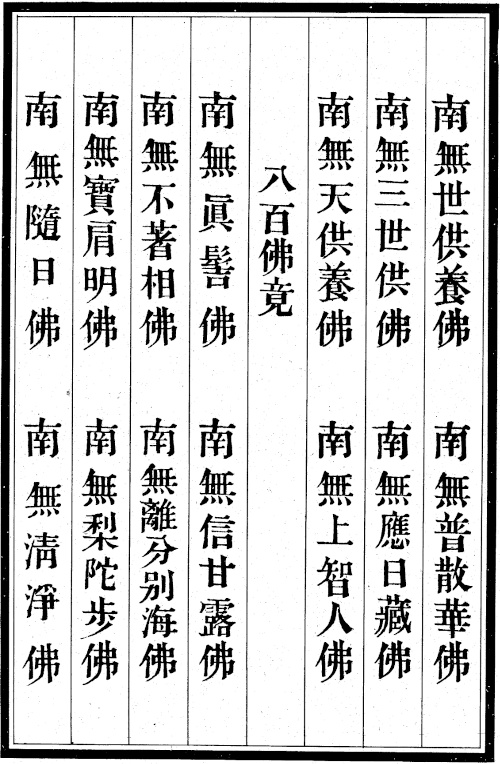 南無世供養佛　南無普散華佛
南無三世供佛　南無應日藏佛
南無天供養佛　南無上智人佛
八百佛竟
南無眞髻佛　南無信甘露佛
南無不著相佛　南無離分別海佛
南無寶肩明佛　南無梨陀步佛
南無隨日佛　南無清淨佛